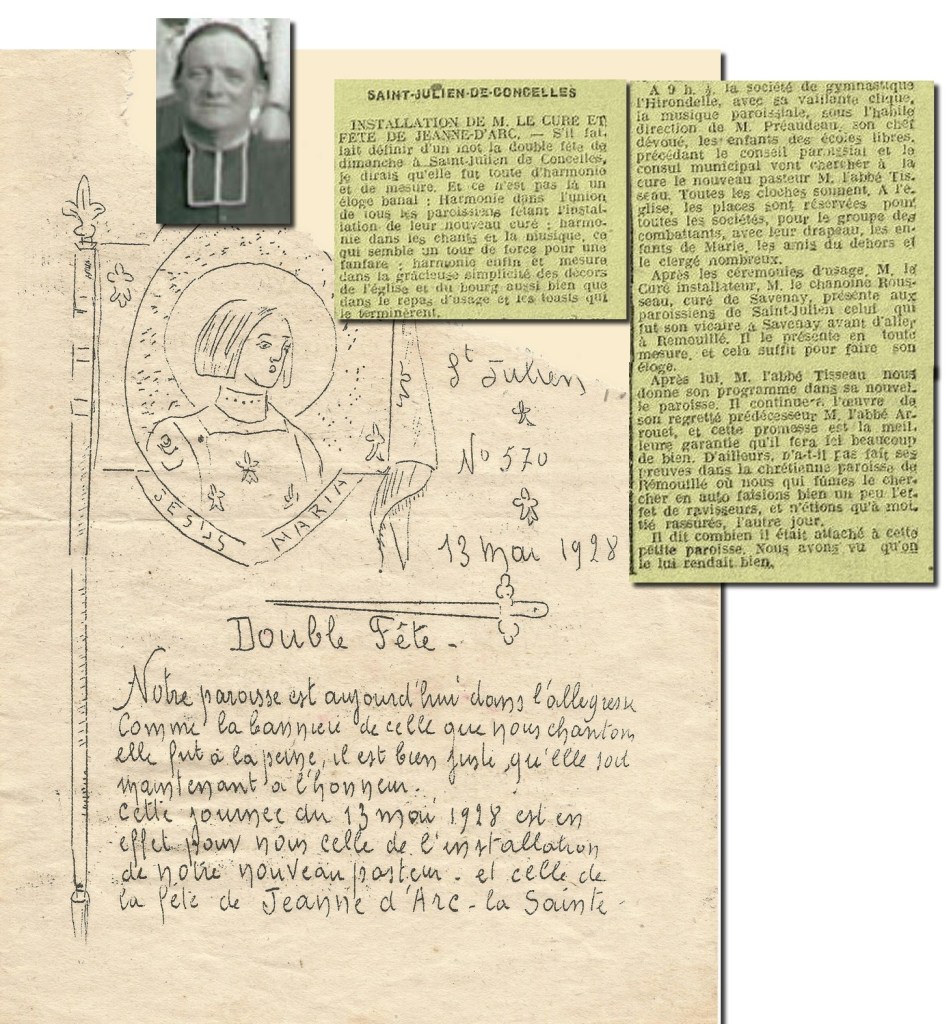 SAINT-JULIEN-DE-CONCELLES
INSTALLATION DE M. LE CURE ET
FÊTE DE JEANNE-D'ARC. — S'il fal-
lait définir d'un mot la double fête de
dimanche à Saint-Julien de Concelles,
je dirais qu'elle fut toute d'harmonie
et de mesure. Et ce n'est pas là un
éloge banal : Harmonie dans l'union
de tous les paroissiens fêtant l'instal-
lation de leur nouveau curé ; harmo-
nie dans les chants et la musique, ce
qui semble un tour de force pour une
fanfare ; harmonie enfin et mesure
dans la gracieuse simplicité des décors
de l'église et du bourg aussi bien que
dans le repas d'usage et les toasts qui
le terminèrent.
A 9 h. ½, la société de gymnastique
l'Hirondelle, avec sa vaillante clique,
la musique paroissiale, sous l'habile
direction de M. Préaudeau, son chef
dévoué, les enfants des écoles libres,
précédant le conseil paroissial et le
consul municipal vont chercher à la
cure le nouveau pasteur M. l'abbé Tis-
seau. Toutes les cloches sonnent. A l'é-
glise, les places sont réservées pour
toutes les sociétés, pour le groupe des
combattants, avec leur drapeau, les en-
fants de Marie, les amis du dehors et
le clergé nombreux.
Après les cérémonies d'usage, M. le
Curé installateur, M. le chanoine Rous-
seau, curé de Savenay, présente aux
paroissiens de Saint-Julien celui qui
fut son vicaire à Savenay avant d'aller
à Remouillé. Il le présente en toute
mesure, et cela suffit pour faire son
éloge.
Après lui, M. l'abbé Tisseau nous
donne son programme dans sa nouvel-
le paroisse. Il continuera l'œuvre de
son regretté prédécesseur M. l'abbé Ar-
rouet, et cette promesse est la meil-
leure garantie qu'il fera ici beaucoup
de bien. D'ailleurs, n'a-t-il pas fait ses
preuves dans la chrétienne paroisse de
Rémouillé où nous qui fûmes le cher-
cher en auto faisions bien un peu l'ef-
fet de ravisseurs, et n'étions qu'à moi-
tié rassurés, l'autre jour.
Il dit combien il était attaché à cette
petite paroisse. Nous avons vu qu'on
le lui rendait bien.
St Julien
No 570
13 Mai 1928
JESUS MARIA
Double Fête -
Notre paroisse est aujourd'hui dans l'allegresse
Comme la bannière de celle que nous chantons
elle fut à la peine, il est bien juste, qu'elle soit
maintenant à l'honneur.
Cette journée du 13 mai 1928 est en
effet pour nous celle de l'installation
de notre nouveau pasteur - et celle de
la fête de Jeanne d'Arc - la Sainte -